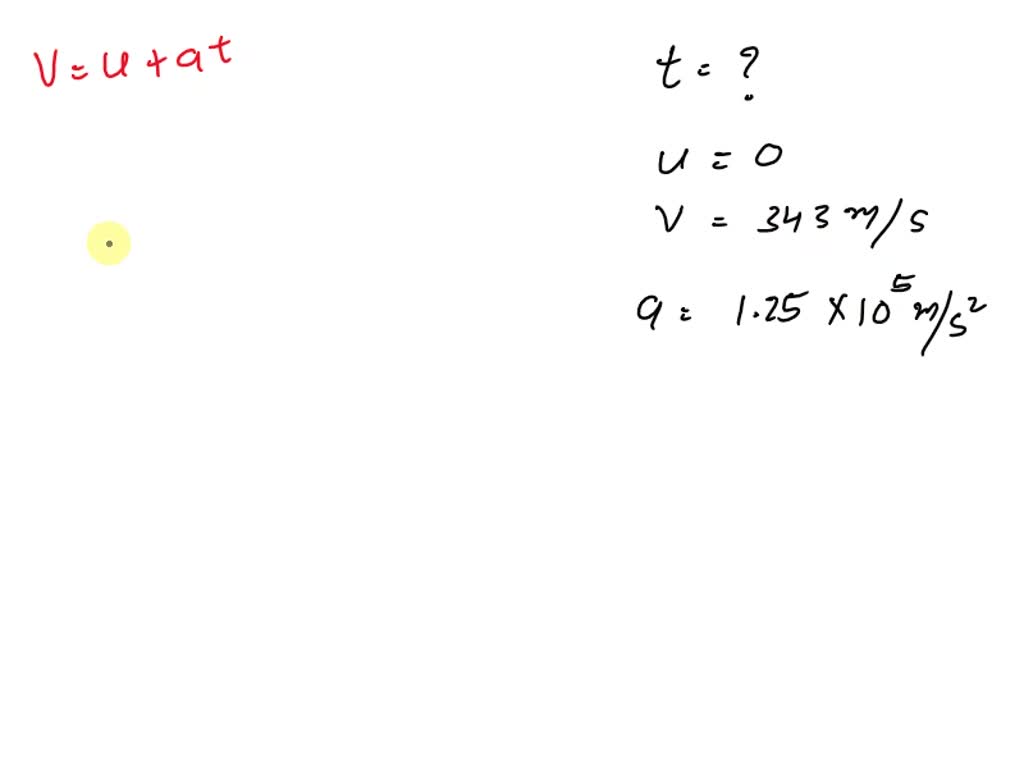 V = u + at
t = ?
u = 0
V = 343 m/s
a = 1.25 × 10⁵ m/s²